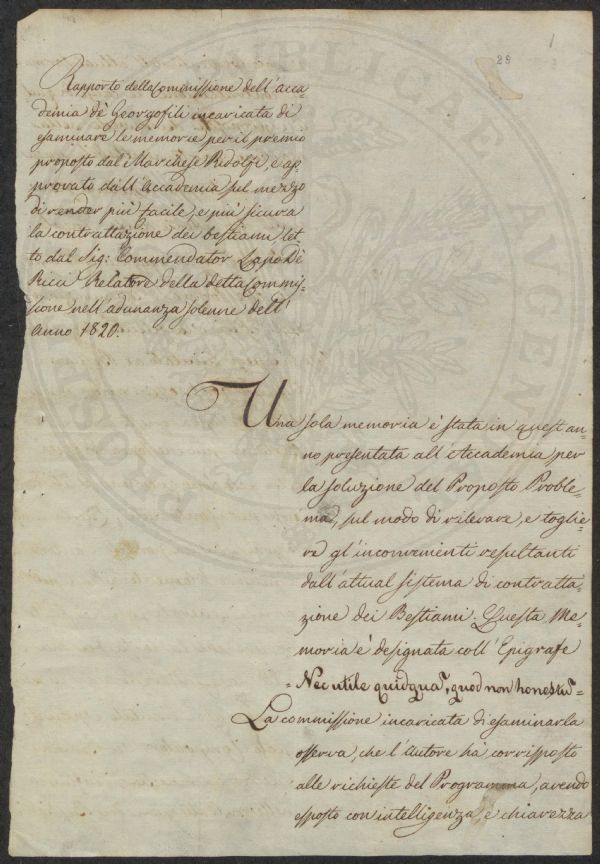 28
1
Rapporto della Commissione dell'acca=
demia de' Georgofili incaricata di
esaminare le memorie per il premio
proposto dal Marchese Ridolfi, e ap=
provato dall'Accademia sul mezzo
di render più facile, e più sicura
la contrattazione dei bestiami let=
to dal Sig: Commendator Lapo De
Ricci Relatore della detta Commis=
sione nell'adunanza solenne dell'
Anno 1820.
Una sola memoria è stata in quest'an=
no presentata all'Accademia per
la soluzione del Proposto Proble=
ma, sul modo di rilevare, e toglie=
re gl'inconvenienti resultanti
dall'attual sistema di contratta=
zione dei Bestiami. Questa Me=
moria è designata coll'Epigrafe
= Nec utile quidquã, quod non honestũ =
La commissione incaricata di esaminarla
osserva, che l'autore hà corrisposto
alle richieste del Programma, avendo
esposto con intelligenza, e chiarezza